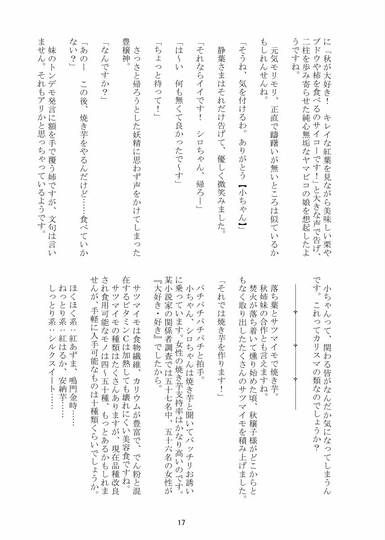 に「秋が大好き！　キレイな紅葉を見ながら美味しい栗や
ブドウや柿を食べるのサイコーです！」と大きな声で告げ、
二柱を歩み寄らせた純心無垢なヤマビコの娘を想起したよ
うですね。
元気モリモリ、正直で躊躇いが無いところは似ているか
もしれんせんね。
「そうね、気を付けるわ。ありがとう【小ちゃん】」
静葉さまはそれだけ告げて、優しく微笑みました。
「それならイイです！　シロちゃん、帰ろー」
「は〜い　何も無くて良かったで〜す」
「ちょっと待って！」
さっさと帰ろうとした妖精に思わず声をかけてしまった
豊穣神。
「なんですか？」
「あのー　この後、焼き芋をやるんだけど……食べていか
ない？」
妹のトンデモ発言に額を手で覆う姉ですが、文句は言い
ません。それもアリかと思っちゃっているようです。
小ちゃんって、関わる皆がなんだか気になってしまうん
です。これってカリスマの類なのでしょうか？
落ち葉とサツマイモで焼き芋。
秋姉妹の合作とも言えますね。
焚火が落ち着いて燻り始めた頃、秋穣子様がどこからと
もなく取り出したたくさんのサツマイモを積み上げました。
「それでは焼き芋を作ります！」
パチパチパチパチと拍手。
小ちゃん、シロちゃんは焼き芋と聞いてバッチリお誘い
に乗っています。女性の焼き芋支持率はかなり高いのです。
某小説家の関係者調査では五十七名中、五十六名の女性が
『大好き・好き』でしたから。
サツマイモは食物繊維、カリウムが豊富で、でん粉と混
在するビタミンCは加熱しても壊れにくい美容食ですね。
サツマイモの種類はたくさんありますが、現在品種改良
され食用可能なモノは四〜五十種、もっとあるかもしれま
せんが、手軽に入手可能なものは十種類くらいでしょうか。
ほくほく系：紅あずま、鳴門金時……
ねっとり系：紅はるか、安納芋……
しっとり系：シルクスイート……
17